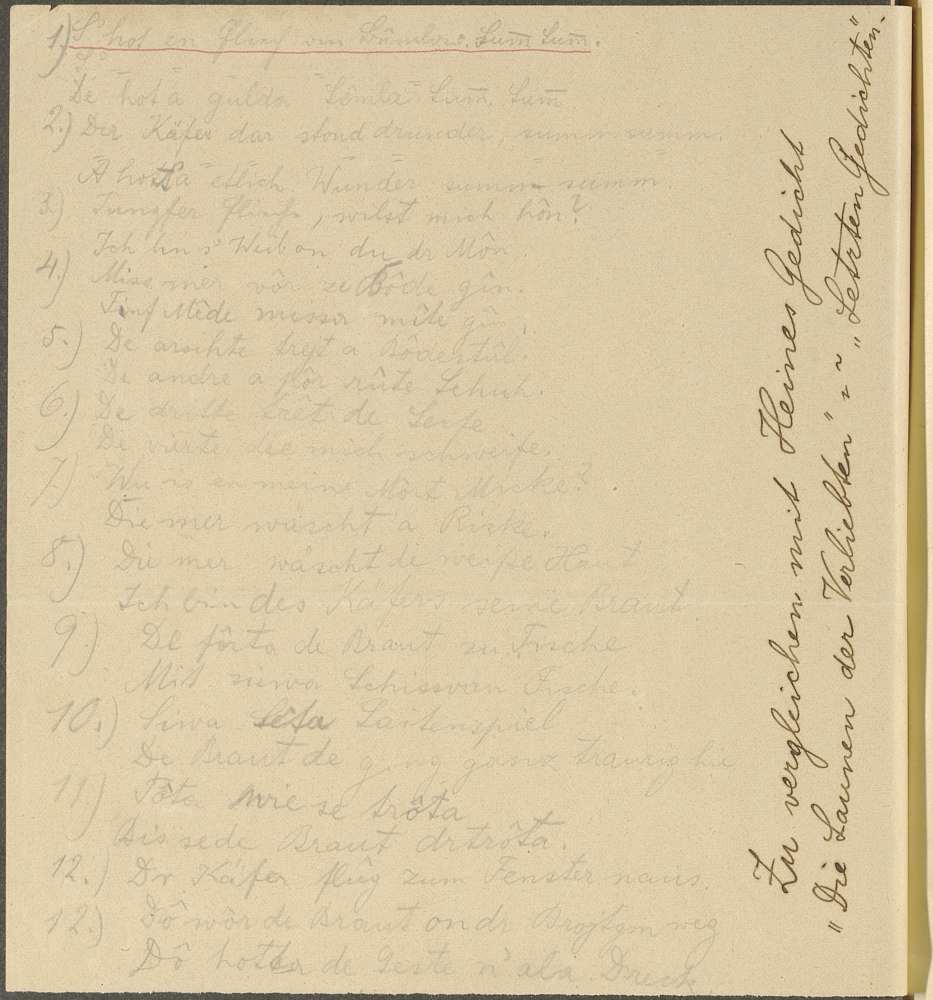 1.) S' hot en Flieg am Sum̄ Sum̄.
De hot a gulda Sum̄. Sum̄
2.) Der Käfer dar stond drunder, summ summ.
A hotta etlich Wunder summ summ.
3.) Jungfer Fliege, wilst mich hôn?
Ich bin s' Weib on du dr Môn.
4.) Miss mer vôr ze Bôde gîn.
Finf Mêde missa mite gîn.
5.) De arschte treyt a Bôdestûl
De andre a pôr rûte Schuh.
6.) De dritte trêt de Seife
De vierte dee mich schweife.
7.) Wu is en meine Môit Micke?
Die mer wäscht a Ricke.
8.) Die mer wäscht de weiße Haut
Ich bin des Käfers seine Braut
9.) De fôrta de Braut zu Tische
Mit siewa Schisseln Fische.
10.) Siwa Saitenspiel
De Braut de ging ganz traurig hie
11) Tôta wie se trôta
Bis se de Braut drtrôta.
12.) Dr Käfer flieg zum Fenster naus.
12.) Dô wôr de Braut on dr Brojtgm weg
Dô hotta de Geste n' ala Dreck
Zu vergleichen mit Heines Gedicht
"Die Launen der Verliebten" "Letzten Gedichten".